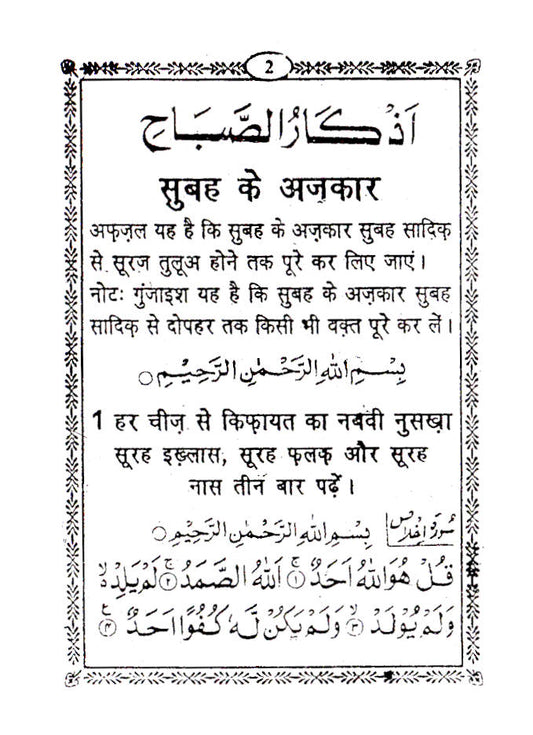 2
اَذْكَارُ الصَّبَاحِ
सुबह के अज़कार
अफ़ज़ल यह है कि सुबह के अज़कार सुबह सादिक़
से सूरज तुलूअ होने तक पूरे कर लिए जाएं।
नोटः गुंजाइश यह है कि सुबह के अज़कार सुबह
सादिक़ से दोपहर तक किसी भी वक़्त पूरे कर लें।
بِسْمِ اللهِ الرَّحْمٰنِ الرَّحِيْمِ ○
1 हर चीज़ से किफ़ायत का नबवी नुसख़ा
सूरह इख़्लास, सूरह फ़लक़ और सूरह
नास तीन बार पढ़ें।
سورۃ اخلاص بِسْمِ اللهِ الرَّحْمٰنِ الرَّحِيْمِ ○
قُلْ هُوَ اللهُ اَحَدٌ ۚ ﴿۱﴾ اَللهُ الصَّمَدُ ۚ ﴿۲﴾ لَمْ يَلِدْ ۙ۬
وَلَمْ يُوْلَدْ ۙ ﴿۳﴾ وَلَمْ يَكُنْ لَّهٗ كُفُوًا اَحَدٌ ﴿۴﴾